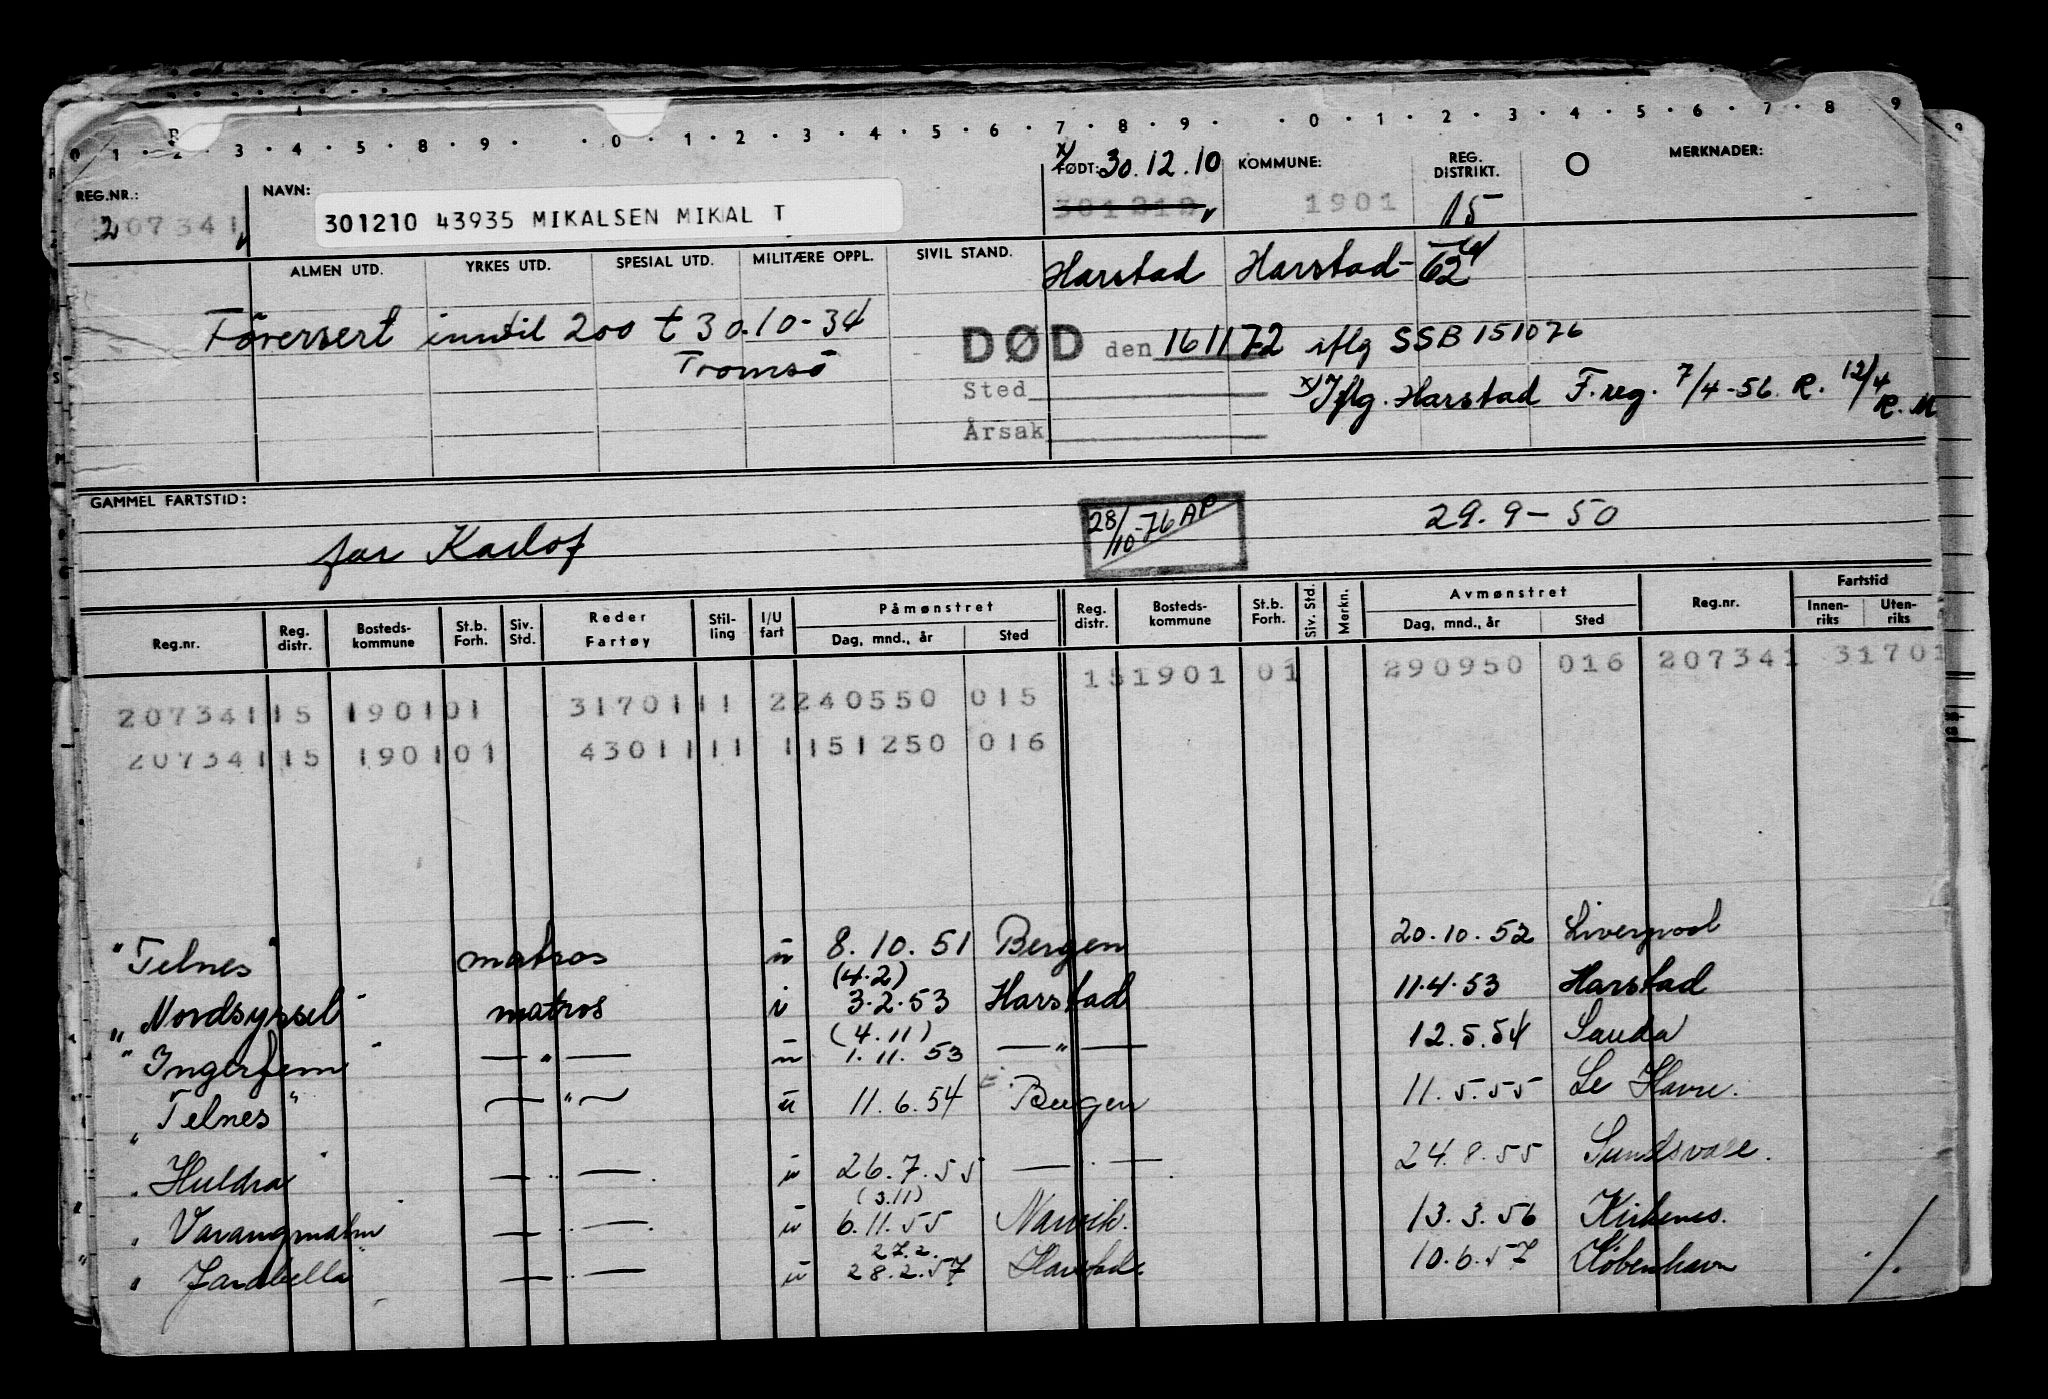 0 · 1 · 2 · 3 · 4 · 5 · 8 · 9 · · 0 · 1 · 2 · 3 · 4 · 5 · 6 · 7 · 8 · 9 · · 0 · 1 · 2 · 3 · 4 · 5 · 6 · 7 · 8 · 9
REG.NR.: NAVN: FØDT: 30.12.10 KOMMUNE: REG. DISTRIKT. O MERKNADER:
207341 301210 43935 MIKALSEN MIKAL T 1901 15
ALMEN UTD. YRKES UTD. SPESIAL UTD. MILITÆRE OPPL. SIVIL STAND. Harstad Harstad- 62
inntil 200 t 30.10-34 DØD den 161172 iflg SSB 151076
Tromsö Sted x) Iflg. Harstad F.reg. 7/4-56. R. 12/4 R.M
Årsak
GAMMEL FARTSTID:
far Karlof 28/10-76 AP 29.9-50
Reg.nr. Reg. distr. Bosteds-kommune St.b. Forh. Siv. Std. Reder Fartøy Stil-ling I/U fart Påmønstret Dag, mnd., år Sted Reg. distr. Bosteds-kommune St.b. Forh. Siv. Std. Merkn. Avmønstret Dag, mnd., år Sted Reg.nr. Fartstid Innen-riks Uten-riks
151901 01 290950 016 207341 31701
207341 15 1901 01 3170111 2240550 015
207341 15 1901 01 4301111 1151250 016
"Telnes" matros u 8.10.51 Bergen 20.10.52 Liverpool
(4.2)
"Nordsyssel" matros i 3.2.53 Harstad 11.4.53 Harstad
(4.11)
"Ingerfem" —"— u 1.11.53 —"— 12.5.54 Sauda
"Telnes" —"— u 11.6.54 Bergen 11.5.55 Le Havre.
"Huldra" —"— u 26.7.55 —"— 24.8.55 Sundsvall.
(3.11)
"Varangmalm —"— u 6.11.55 Narvik. 13.3.56 Kirkenes.
27.2.
"Jarabella" —"— u 28.2.57 Harstad 10.6.57 København